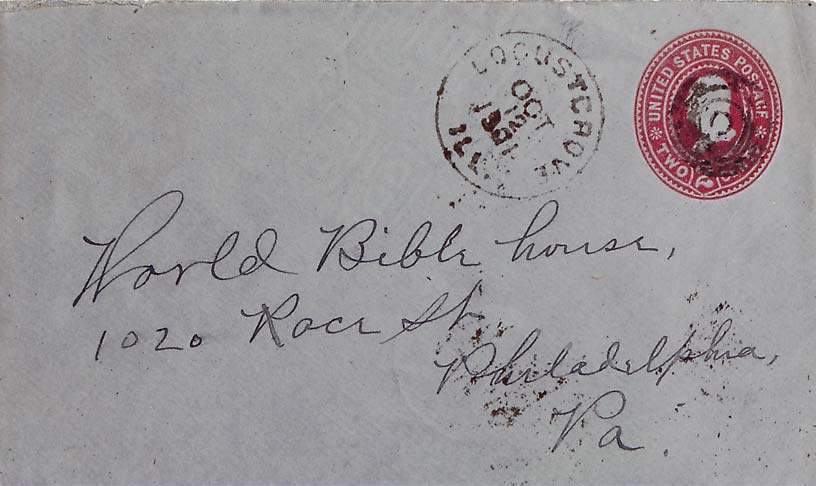 LOCUSTGROVE
OCT
UNITED STATES POSTAGE
TWO 2
World Bible house,
1020 Race St
Philadelphia,
Pa.